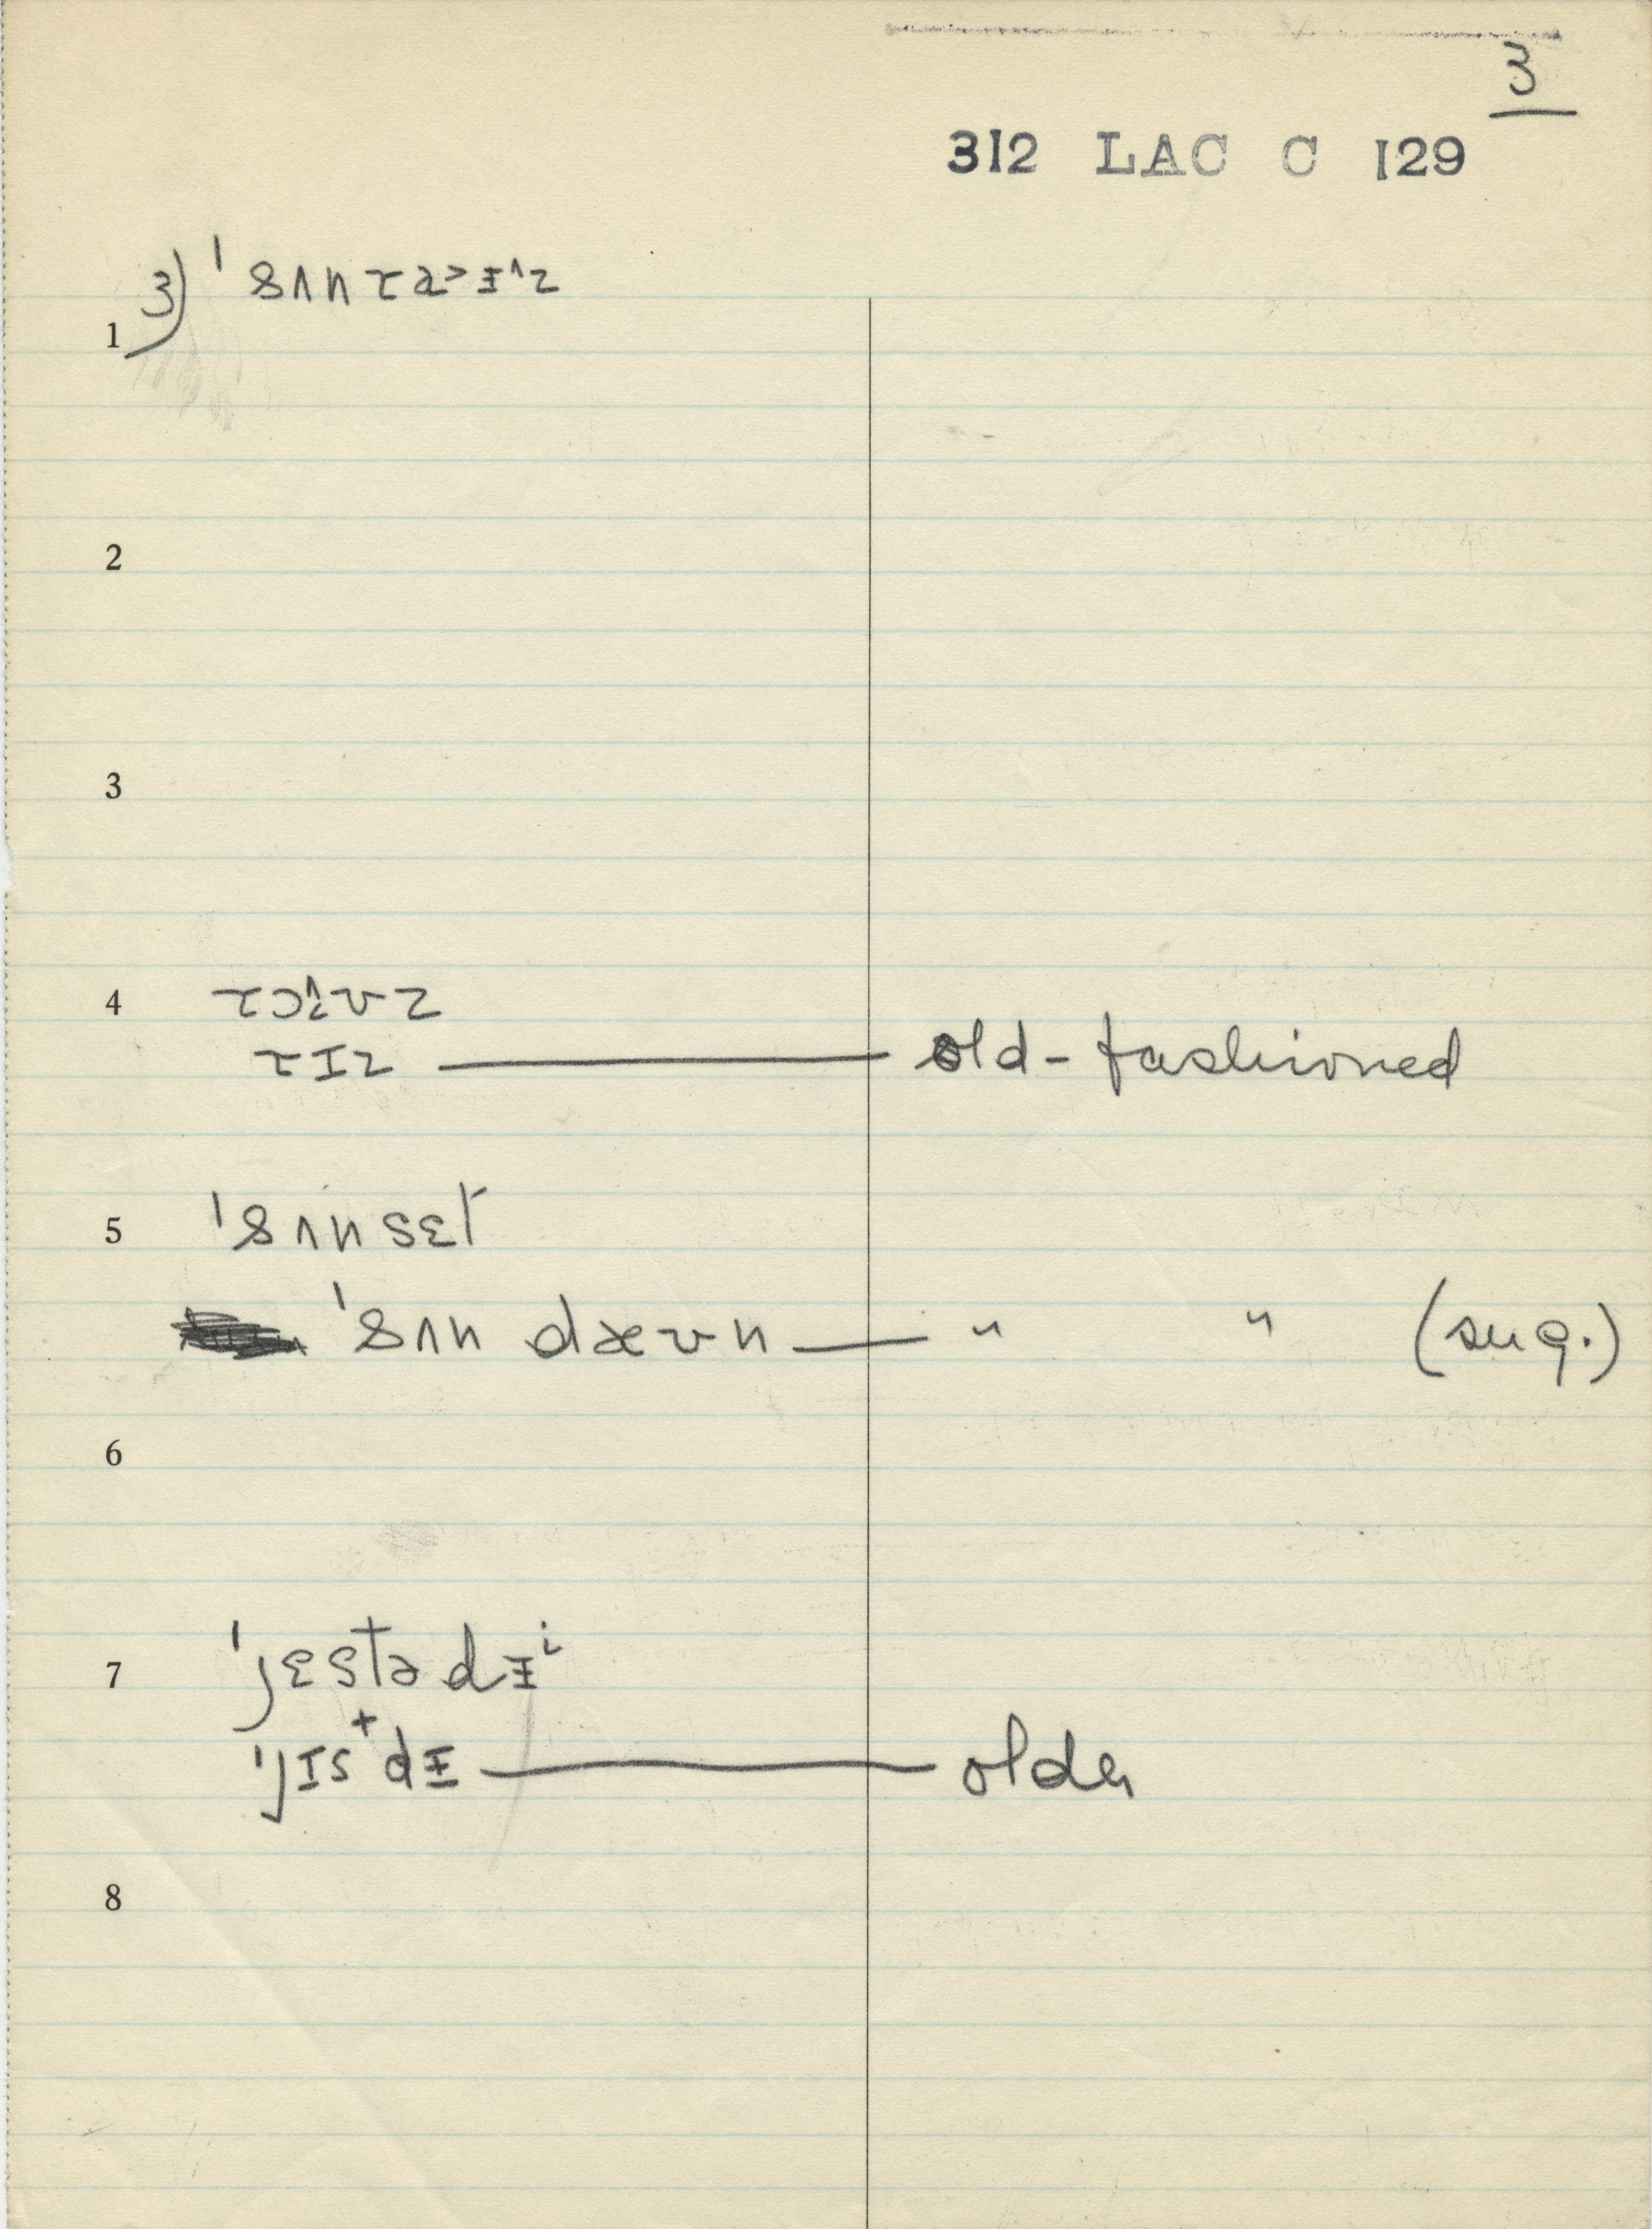 3
312 LAC C 129
3) ˈsʌn
1
2
3
4
ɹɪz — old-fashioned
5 ˈsʌnsɛt
ˈsʌn dæʊn — " " (sug.)
6
7 ˈjɛstədɨⁱ
ˈjɪs⁺dɨ — older
8